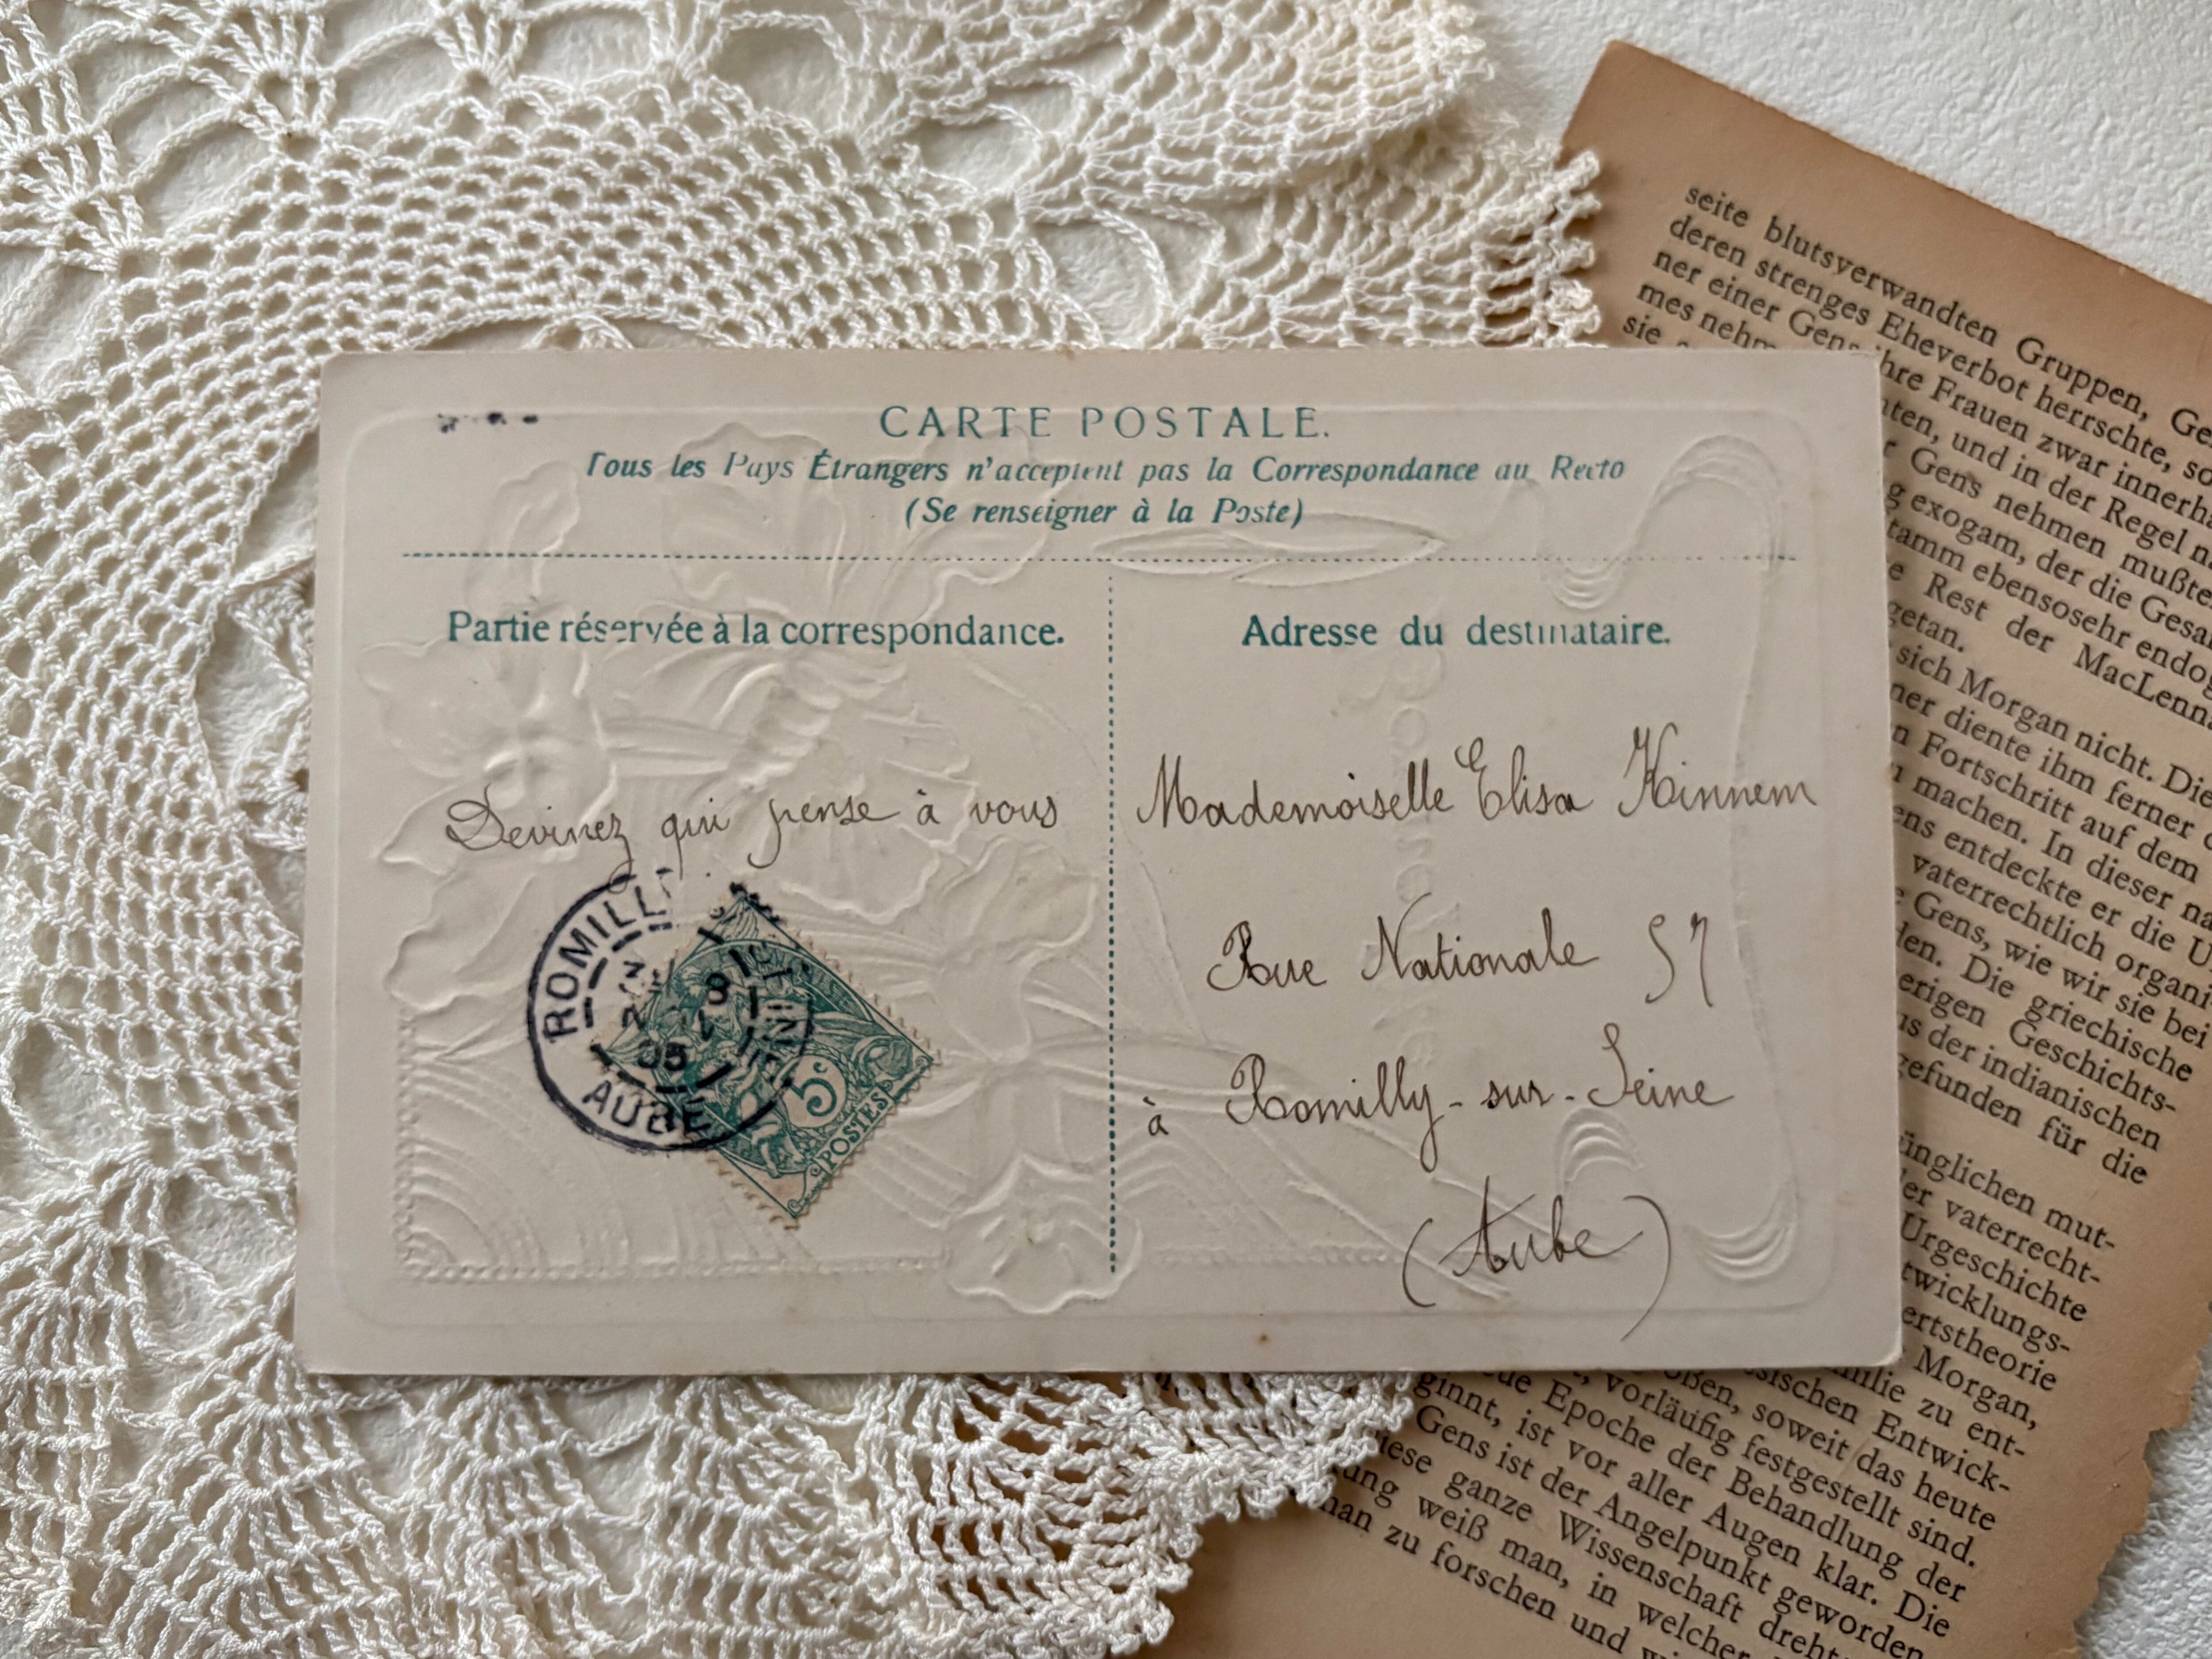 CARTE POSTALE.
Tous les Pays Étrangers n'acceptent pas la Correspondance au Recto
(Se renseigner à la Poste)
Partie réservée à la correspondance.
Devinez qui pense à vous
Adresse du destinataire.
Mademoiselle Elisa Hinnem
Rue Nationale 57
à Romilly-sur-Seine
(Aube)
ROMILLY
8
05
AUBE
5c
POSTES
seite blutsverwandten Gruppen, Ge
deren strenges Eheverbot herrschte, so
ner einer Gens ihre Frauen zwar innerha
mes nehm ten, und in der Regel n
sie Gens nehmen mußte
g exogam, der die Gesa
tamm ebensosehr endog
e Rest der MacLenn
getan.
sich Morgan nicht. Die
ner diente ihm ferner
n Fortschritt auf dem
u machen. In dieser na
ens entdeckte er die U
vaterrechtlich organi
Gens, wie wir sie bei
den. Die griechische
erigen Geschichts-
us der indianischen
gefunden für die
ünglichen mut-
er vaterrecht-
Urgeschichte
twicklungs-
ertstheorie
Morgan,
milie zu ent-
ssischen Entwick-
oßen, soweit das heute
, vorläufig festgestellt sind.
ue Epoche der Behandlung der
ginnt, ist vor aller Augen klar. Die
Gens ist der Angelpunkt geworden
iese ganze Wissenschaft dreht
ung weiß man, in welcher
man zu forschen und